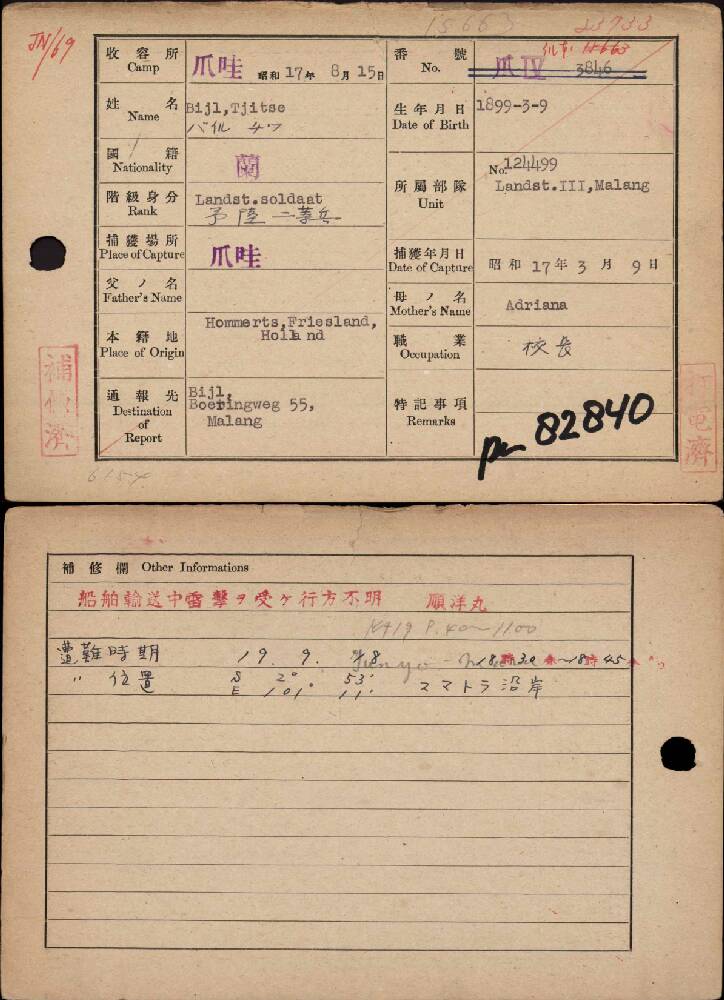 15663
23733
JN/69
収容所
Camp
爪哇
昭和17年 8月15日
番號
No.
15663
爪 IV 3846
姓名
Name
Bijl,Tjitse
生年月日
Date of Birth
1899-3-9
國籍
Nationality
蘭
所屬部隊
Unit
No.124499
Landst.III,Malang
階級身分
Rank
Landst.soldaat
捕獲場所
Place of Capture
爪哇
捕獲年月日
Date of Capture
昭和 17年 3月 9日
父ノ名
Father's Name
母ノ名
Mother's Name
Adriana
本籍地
Place of Origin
Hommerts,Friesland,
Holland
職業
Occupation
校長
通報先
Destination
of
Report
Bijl,
Boeringweg 55,
Malang
特記事項
Remarks
82840
補修濟
電濟
6154
補修欄 Other Informations
船舶輸送中雷擊ヲ受ケ行方不明 順洋丸
P.40~1100
遭難時期 19. 9. 18 Junyo 18時30分~18時45分
〃 位置 S 2° 53'
E 101° 11' スマトラ沿岸